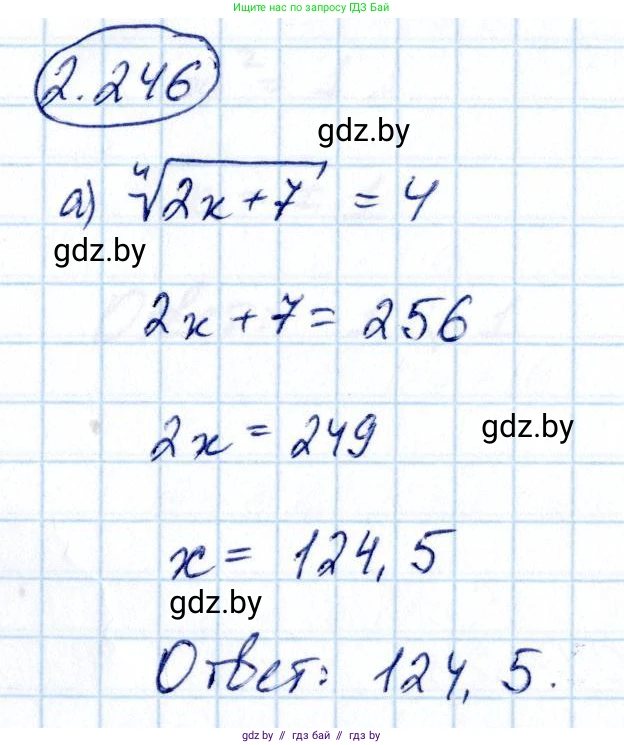 Ищите нас по запросу ГДЗ Бай
2.246
gdz.by
а) ∜2x+7 = 4
gdz.by
2x + 7 = 256
2x = 249
gdz.by
x = 124,5
gdz.by
Ответ: 124,5.
gdz.by // гдз бай // гдз by